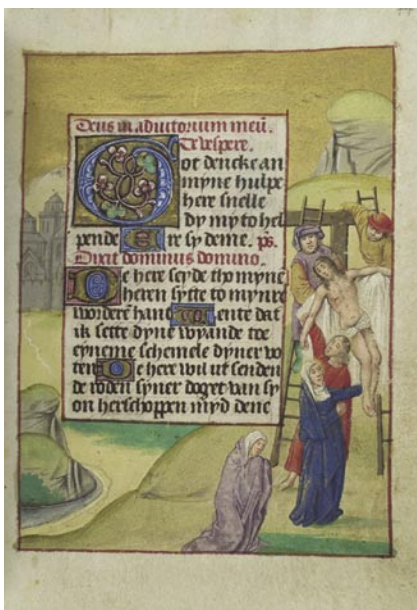 Deus in adiutorium meu̅.
Te vespere.
Got dencke an
myne hulpe
here snelle
dy my to hel
pende Ere sy deme. ps.
Dixit dominus domino.
De here seyde tho myne
heren sytte to mynre
vorderē hand Wente dat
ik sette dyne vyande toe
eyneme schemele dyner vo
ten De here wil ut senden
de roden syner doget van sy
on herschoppen myd dene